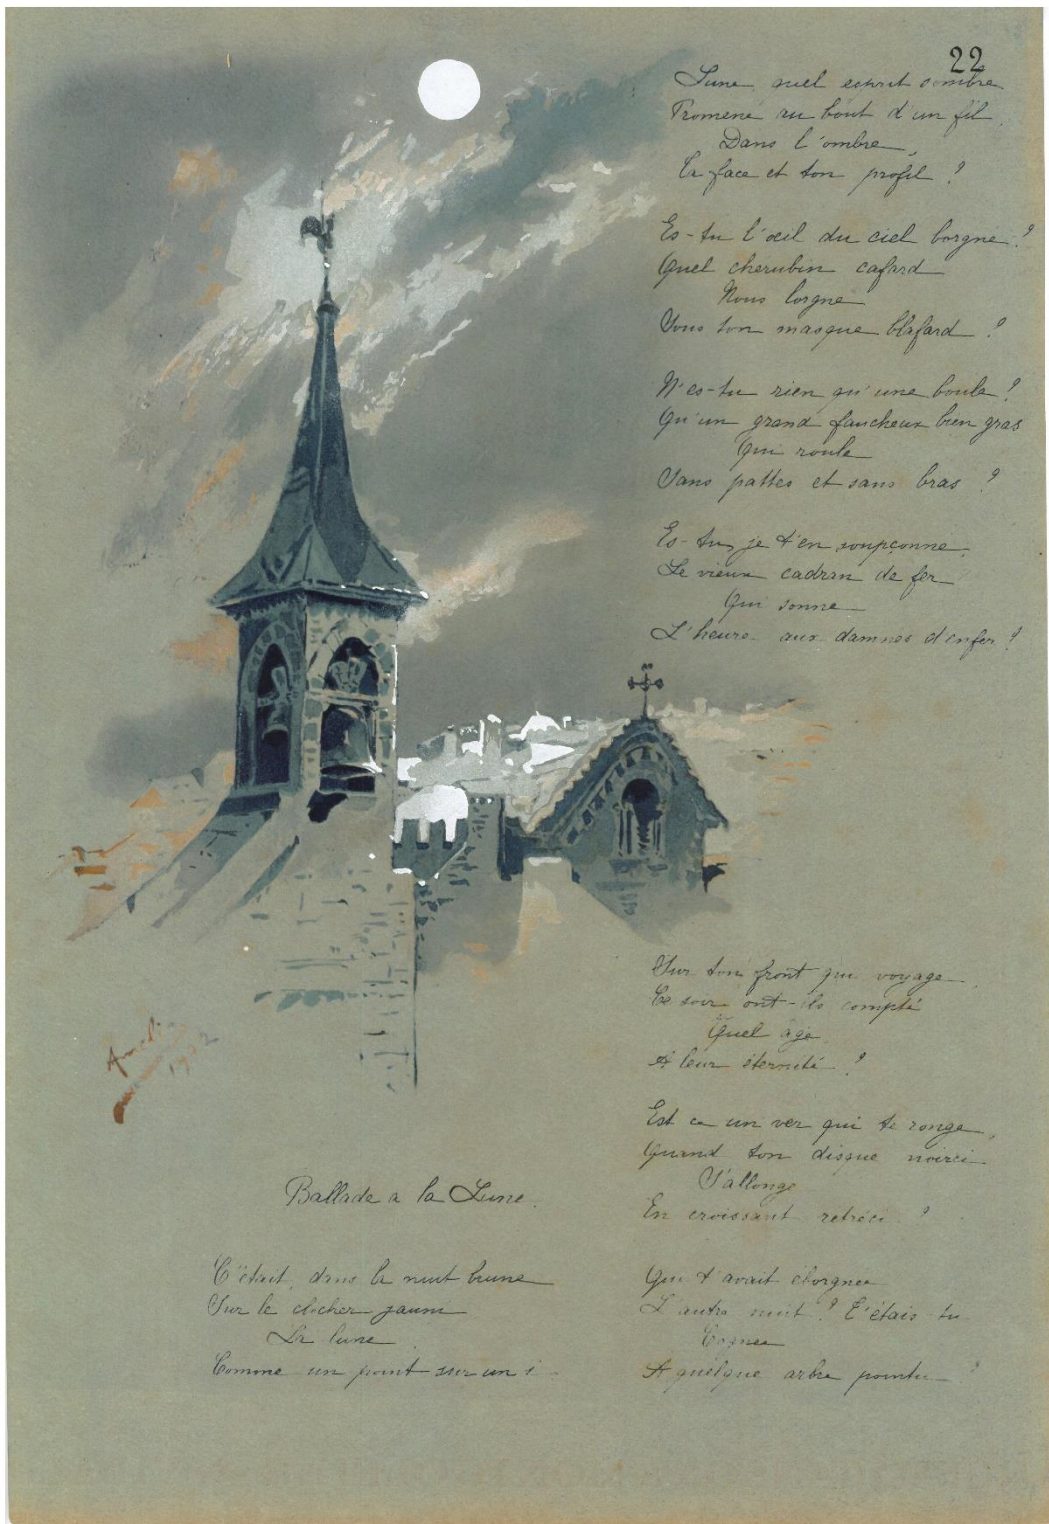 22
Ballade a la Lune.
C'était, dans la nuit brune
Sur le clocher jauni
La lune
Comme un point sur un i
Lune quel esprit sombre
Promene au bout d'un fil
Dans l'ombre,
Ta face et ton profil ?
Es-tu l'œil du ciel borgne ?
Quel cherubin cafard
Nous lorgne
Sous ton masque blafard ?
N'es-tu rien qu'une boule ?
Qu'un grand faucheux bien gras
Qui roule
Sans pattes et sans bras ?
Es-tu, je t'en soupçonne,
Le vieux cadran de fer
Qui sonne
L'heure aux damnes d'enfer ?
Sur ton front qui voyage
Ce soir ont-ils compté
Quel âge
A leur éternité ?
Est ce un ver qui te ronge,
Quand ton disque noirci
S'allonge
En croissant retréci ?
Qui t'avait éborgnée
L'autre nuit ? T'étais tu
Cognee
A quelque arbre pointu ?
1902